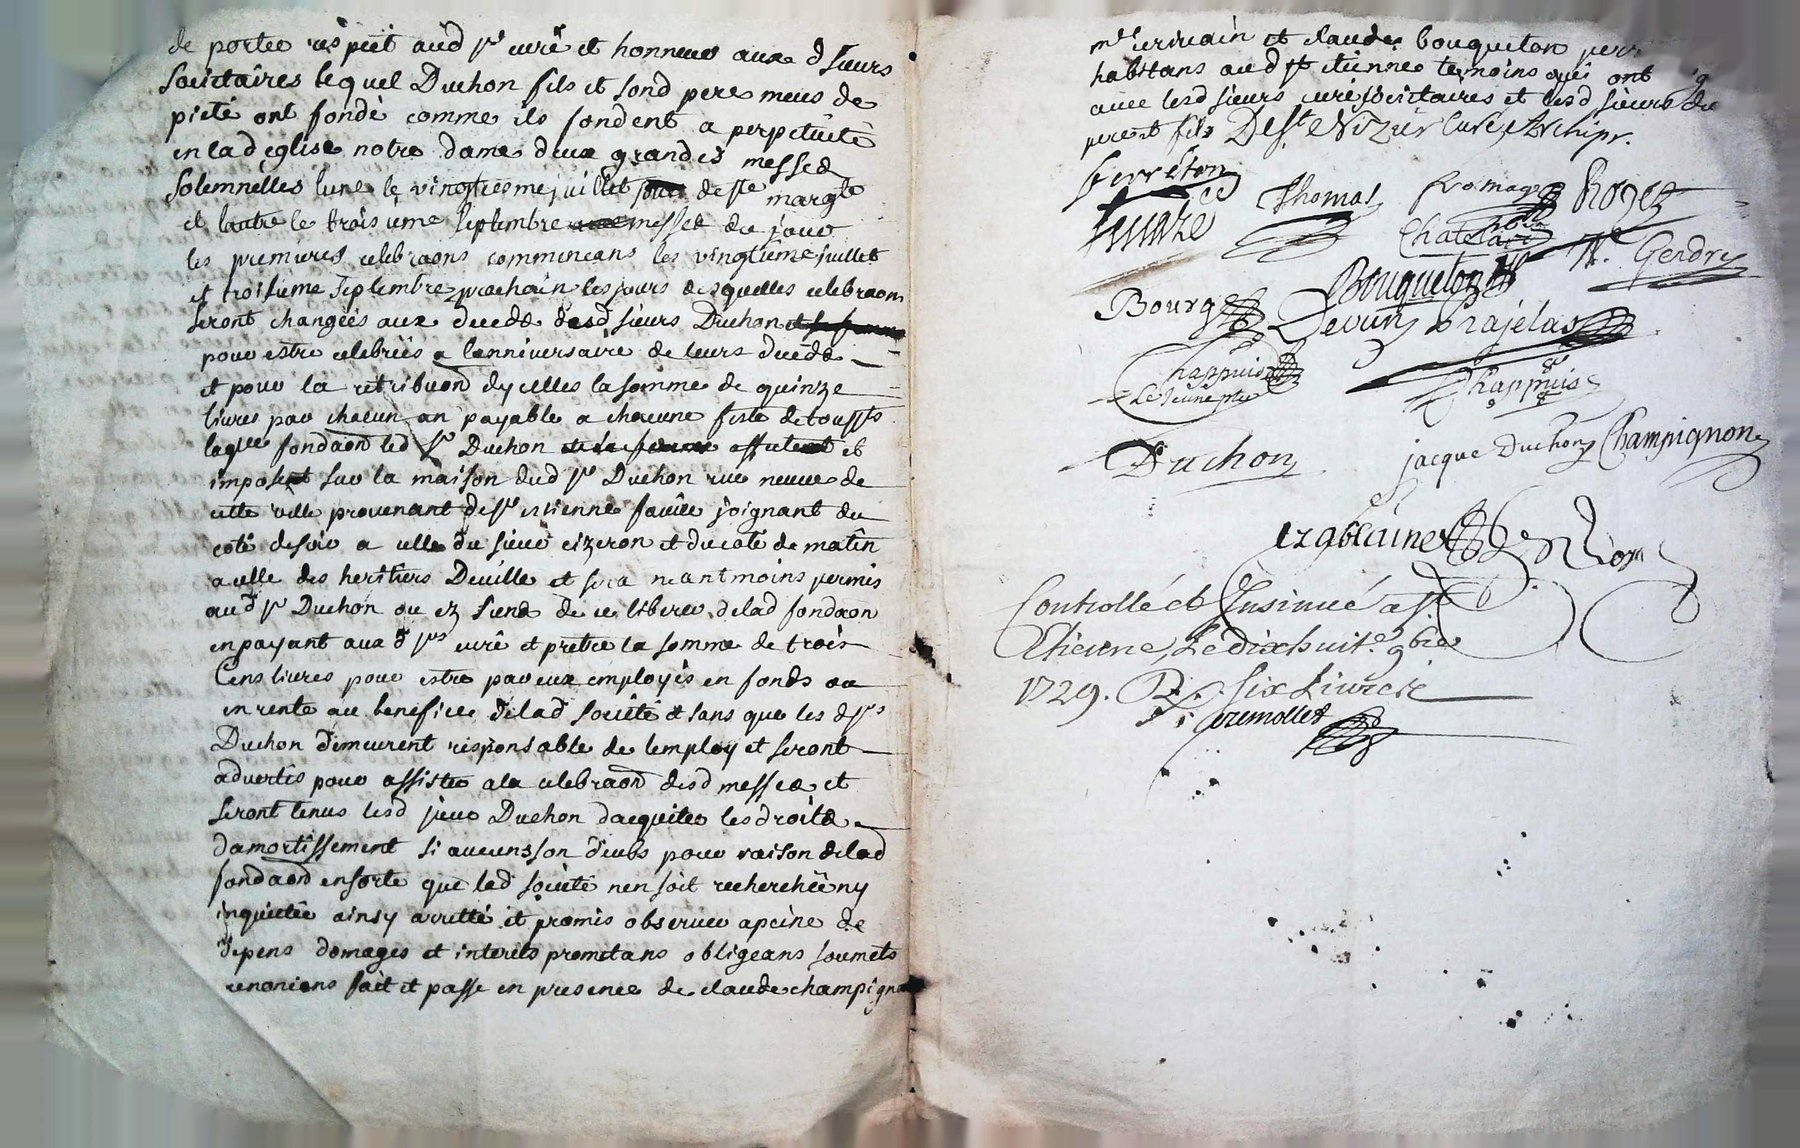 de porter respect aud sr curé et honneur aux d sieurs
societaires lequel Duchon fils et sond pere meus de
pieté ont fondé comme ils fondent a perpetuité
en lad eglise notre dame deux grandes messes
solemnelles lune le vingtiesme juillet jour de ste margte
et lautre le troisieme septembre messes du jour
les premieres celebraons commenceans les vingtieme juillet
et troisieme septembre prochain les jours desquelles celebraons
seront changées aux decedz desd sieurs Duchon et sa femme
pour estre celebrées a lanniversaire de leurs decedz
et pour la retribuon dycelles la somme de quinze
livres par chacun an payable a chacune feste de toussts
laqlle fondaon led sr Duchon et sa femme assitent et
imposent sur la maison dud sr Duchon rue neuve de
cette ville provenant de sr estienne faure joignant du
coté de soir a celle du sieur eizeron et du coté de matin
a celle des heritiers Deville et sera neantmoins permis
aud sr Duchon ou ez siens de ce liberer de lad fondaon
en payant aux d srs curé et pretre la somme de trois
Cens livres pour estre par eux employés en fonds ou
en rente au benefice de lad societé et sans que les d srs
Duchon demeurent responsable de lemploy et seront
advertis pour assister a la celebraon desd messes et
seront tenus lesd sieur Duchon dacquiter les droits
damortissement si aucuns son deubs pour raison de lad
fondaon ensorte que lad societé nen soit recherchée ny
inquietée ainsy arretté et promis observer a peine de
depens domages et interets promettans obligeans soumets
renoncens fait et passe en presence de claude champignon
me ecrivain et claude bouqueton
habitans aud st etienne temoins qui ont
avec lesd sieurs curé societaires et lesd sieurs du
pere et fils Dest eNizier Curé Archipr.
ferréton
Thomas fromage Rogez
Chatelard
Bouqueton N. Gendre
Bourg Devun Prajelas
Chappuis
Le Jeune ptre
Chappuis
Duchon jacque Duchon Champignon
Controllé et Insinué a St
Etienne, Le dix huit.e 9bre
1729. R. Six Livres